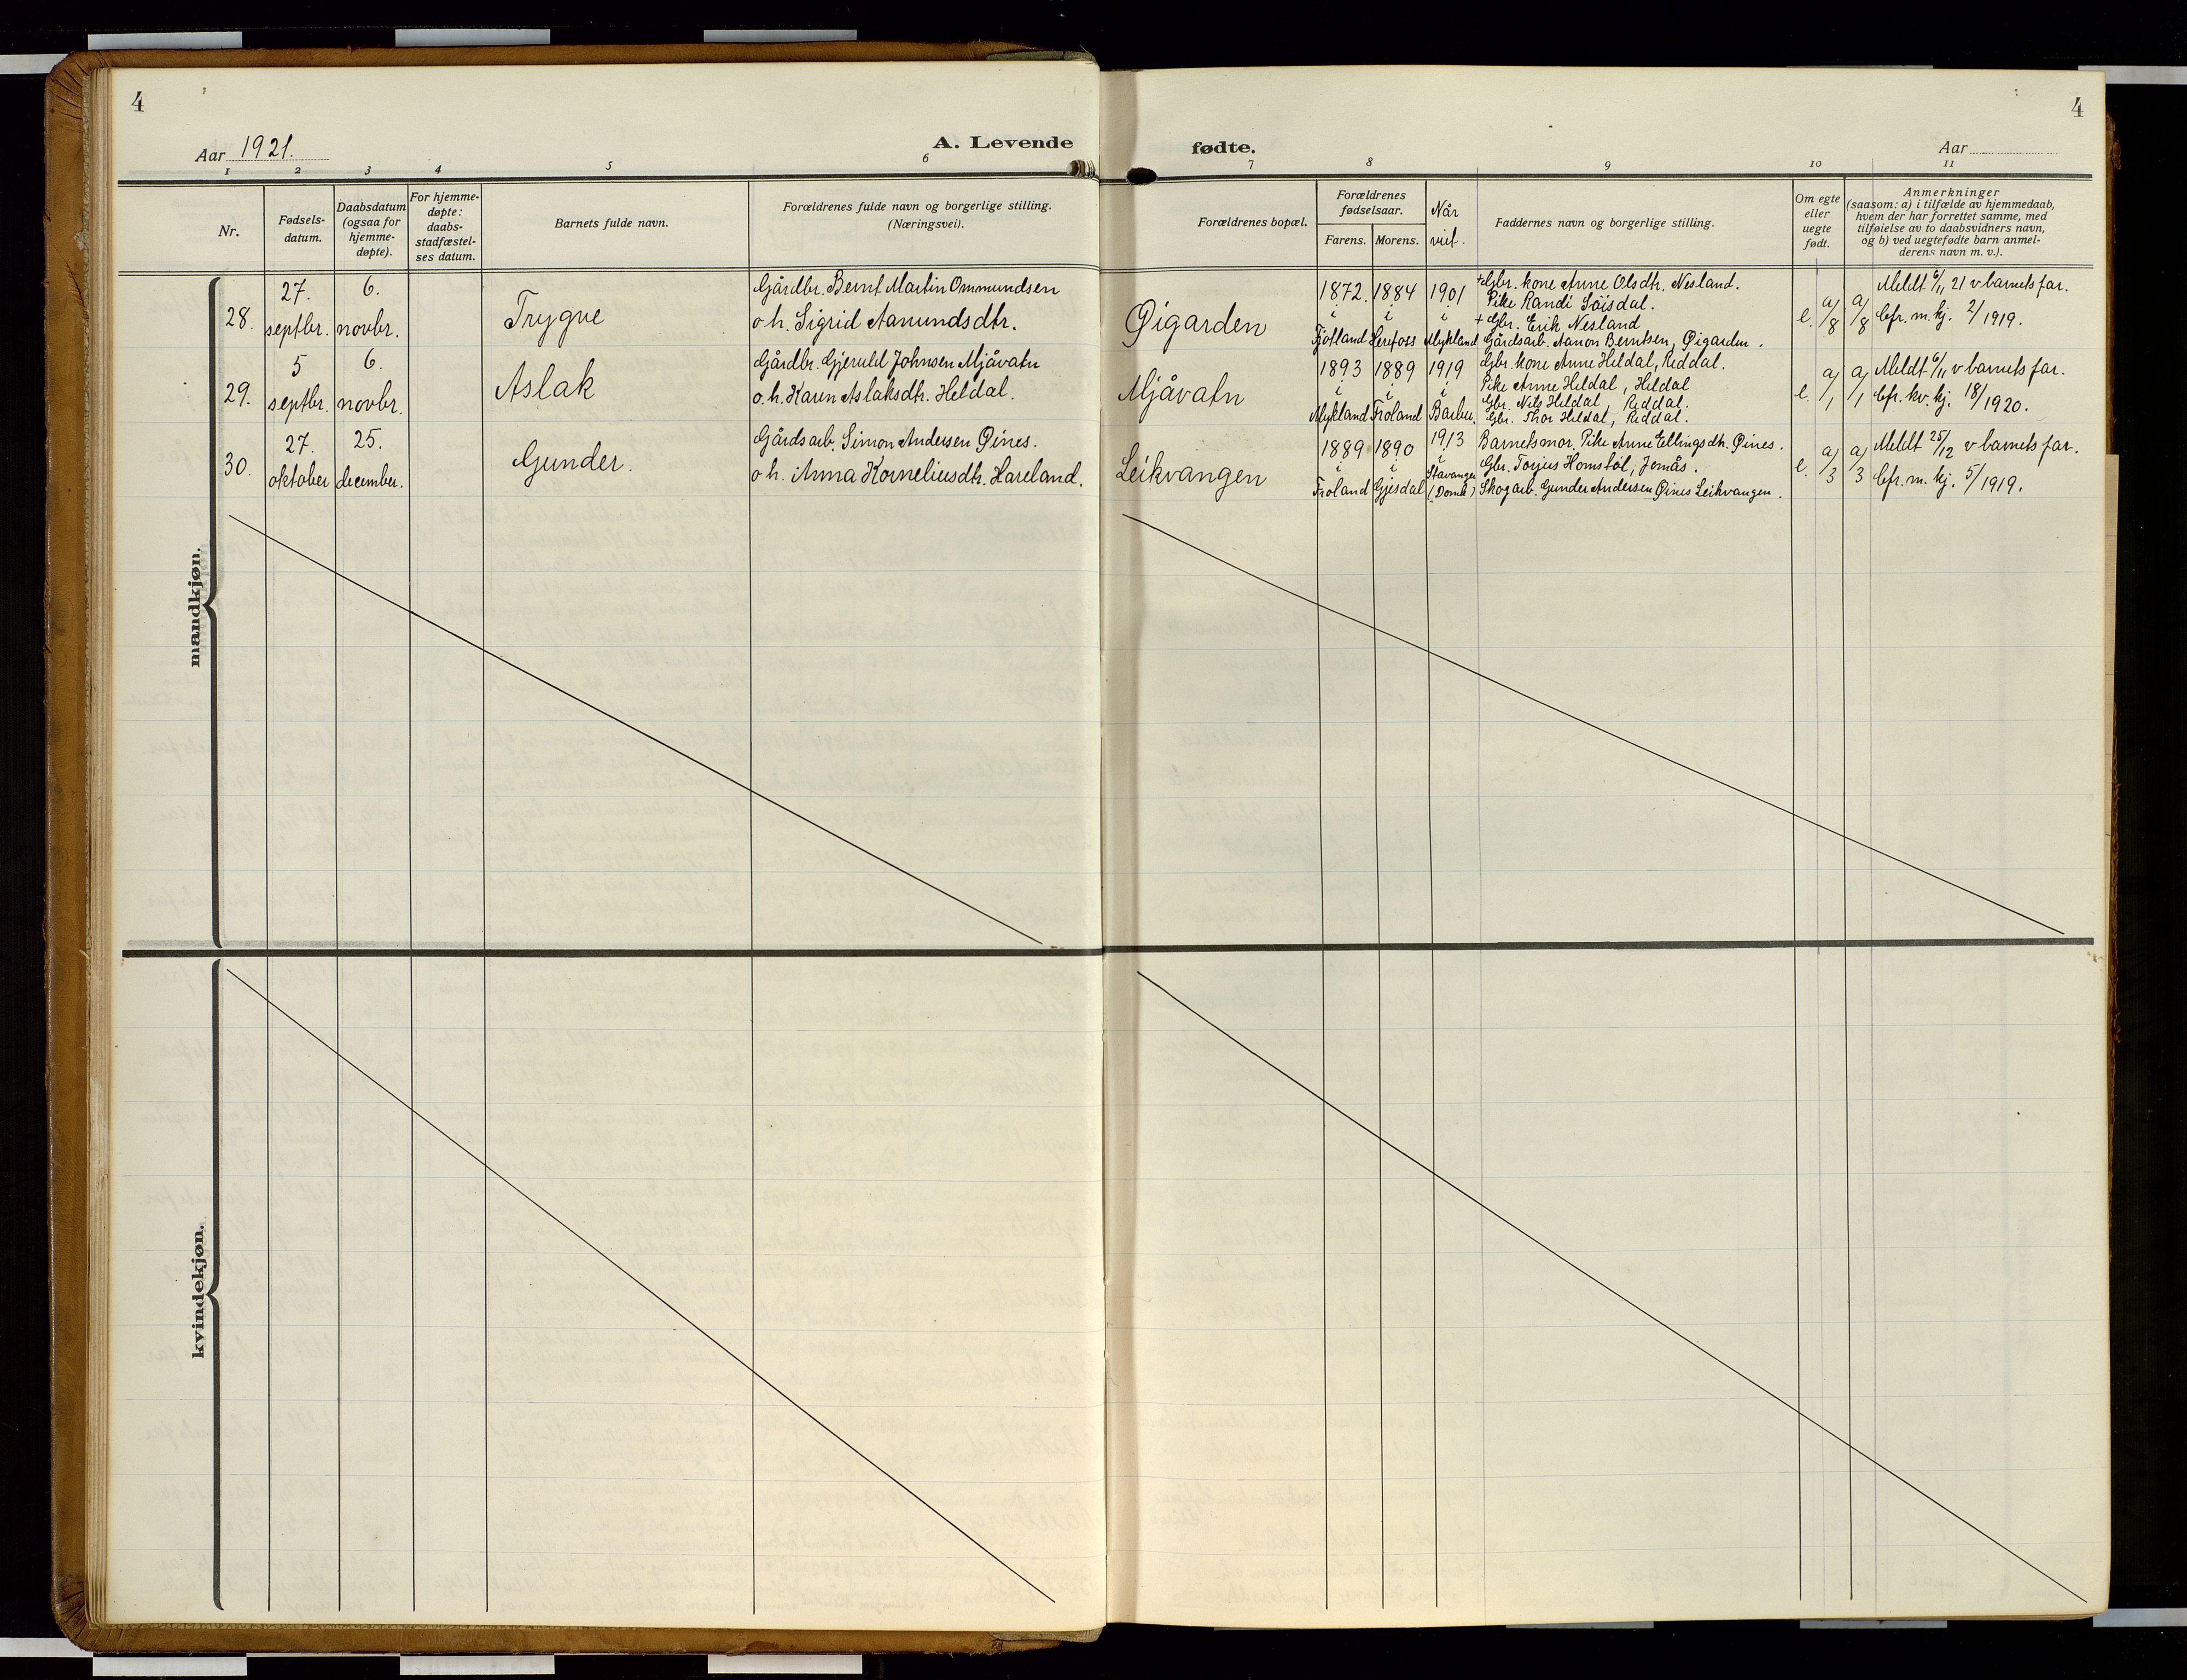 4
Aar 1921.
A. Levende
fødte.
4
Aar
1
2
3
4
5
6
7
8
9
10
11
Nr.
Fødsels-
datum.
Daabsdatum
(ogsaa for
hjemme-
døpte).
For hjemme-
døpte:
daabs-
stadfæstel-
ses datum.
Barnets fulde navn.
Forældrenes fulde navn og borgerlige stilling.
(Næringsvei).
Forældrenes bopæl.
Forældrenes
fødselsaar.
Farens.
Morens.
Når
viet.
Faddernes navn og borgerlige stilling.
Om egte
eller
uegte
født.
Anmerkninger
(saasom: a) i tilfælde av hjemmedaab,
hvem der har forrettet samme, med
tilføielse av to daabsvidners navn,
og b) ved uegtefødte barn anmel-
derens navn m. v.).
mandkjøn.
28.
27.
septbr.
6.
novbr.
Trygve
Gårdbr. Bernt Martin Ommundsen
o h. Sigrid Aanundsdtr.
Øigarden
1872.
i
Fjotland
1884
i
Herefoss
1901
i
Mykland
+ Gbr. kone Anne Olsdtr. Nesland.
Pike Randi Säisdal.
+ Gbr. Erik Nesland
Gårdsarb. Aanon Berntsen, Øigarden.
e.
a/8
a/8
Meldt 6/11 21 v barnets far.
Cfr. m. kj. 2/1919.
29.
5
septbr.
6.
novbr.
Aslak
Gårdbr. Gjeruld Johnsen Mjåvatn
o. h. Karen Aslaksdtr. Heldal.
Mjåvatn
1893
i
Mykland
1889
i
Froland
1919
i
Barbu.
Gbr. kone Anne Heldal, Reddal.
Pike Anne Heldal, Heldal
Gbr. Nils Heldal, Reddal.
Gbr. Thor Heldal, Reddal.
e.
a/1
a/1
Meldt 6/11 v barnets far.
Cfr. kv. kj. 18/1920.
30.
27.
oktober
25.
december.
Gunder.
Gårdsarb. Simon Andersen Øines.
o h. Anna Korneliusdtr. Hareland.
Leikvangen
1889
i
Froland
1890
i
Gjesdal
1913
i
Stavanger
(Domk)
Barnetsmor. Pike Anne Ellingsdtr. Øines.
Gbr. Torjus Homstøl, Jomås.
Skogarb. Gunder Andersen Øines Leikvangen.
e.
a/3
a/3
Meldt 25/12 v barnets far.
Cfr. m. kj. 5/1919.
kvindekjøn.